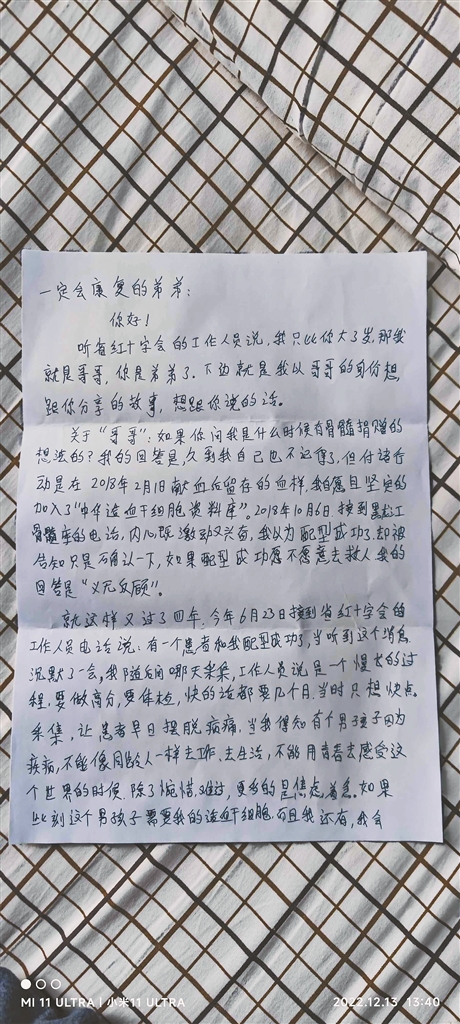 一定会康复的弟弟:
你好!
听省红十字会的工作人员说,我只比你大3岁,那我
就是哥哥,你是弟弟了。下边就是我以哥哥的身份想
跟你分享的故事,想跟你说的话。
关于“哥哥”:如果你问我是什么时候有骨髓捐赠的
想法的?我的回答是,久到我自己也不记得了,但付诸行
动是在2018年2月1日献血后留存的血样,我自愿且坚定的
加入了“中华造血干细胞资料库”。2018年10月6日接到黑龙江
骨髓库的电话,内心既激动又兴奋,我以为配型成功了,却被
告知只是再确认一下,如果配型成功愿不愿意去救人我的
回答是“义无反顾”。
就这样又过了四年,今年6月23日接到省红十字会的
工作人员电话说:有一个患者和我配型成功了,当听到这个消息
沉默了一会,我随后问哪天采集,工作人员说是一个漫长的过
程,要做高分,要体检,快的话都要几个月,当时只想快点
采集,让患者早日摆脱病痛,当我得知有个男孩子因为
疾病,不能像同龄人一样去工作、去生活,不能用青春去感受这
个世界的时候,除了惋惜、难过,更多的是焦虑、着急。如果
此刻这个男孩子需要我的造血干细胞,而且我还有,我会
MI 11 ULTRA | 小米11 ULTRA
2022.12.13 13:40